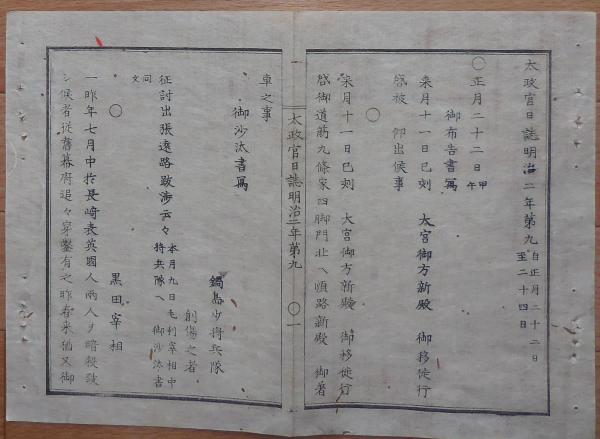 太政官日誌明治二年第九 自正月二十二日 至二十四日
〇正月二十二日 甲午
御布告書寫
來月十一日巳刻 大宮御方新殿 御移徙行
啓被 仰出候事
〇
來月十一日巳刻 大宮御方新殿 御移徙行
啓御道筋九條家四脚門北ヘ順路新殿 御著
太政官日誌明治二年第九 〇一
車之事
御沙汰書寫
鍋島少將兵隊
創傷之者
征討出張遠路跋渉云々 本月九日毛利宰相中將兵隊ヘ 御沙汰書
同文
〇
黒田宰相
一昨年七月中於長崎表英國人兩人ヲ暗殺致
シ候者從舊幕府追々穿鑿有之昨春來猶又御